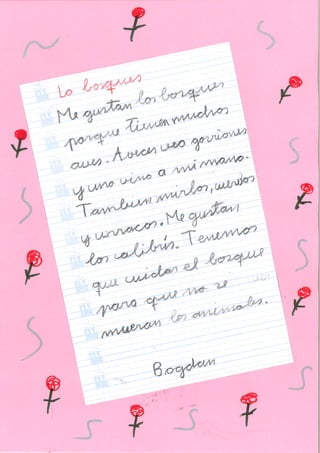 Lo bosques
Me gustan los bosques
porque tienen muchos
aves. A veces veo gorriones
y uno vino a mi mano.
Tambien mirlos, cuervos
y urracos. Me gustan
los colibris. Tenemos
que cuidar el bosque
para que no se
mueran los animales.
Bogdan